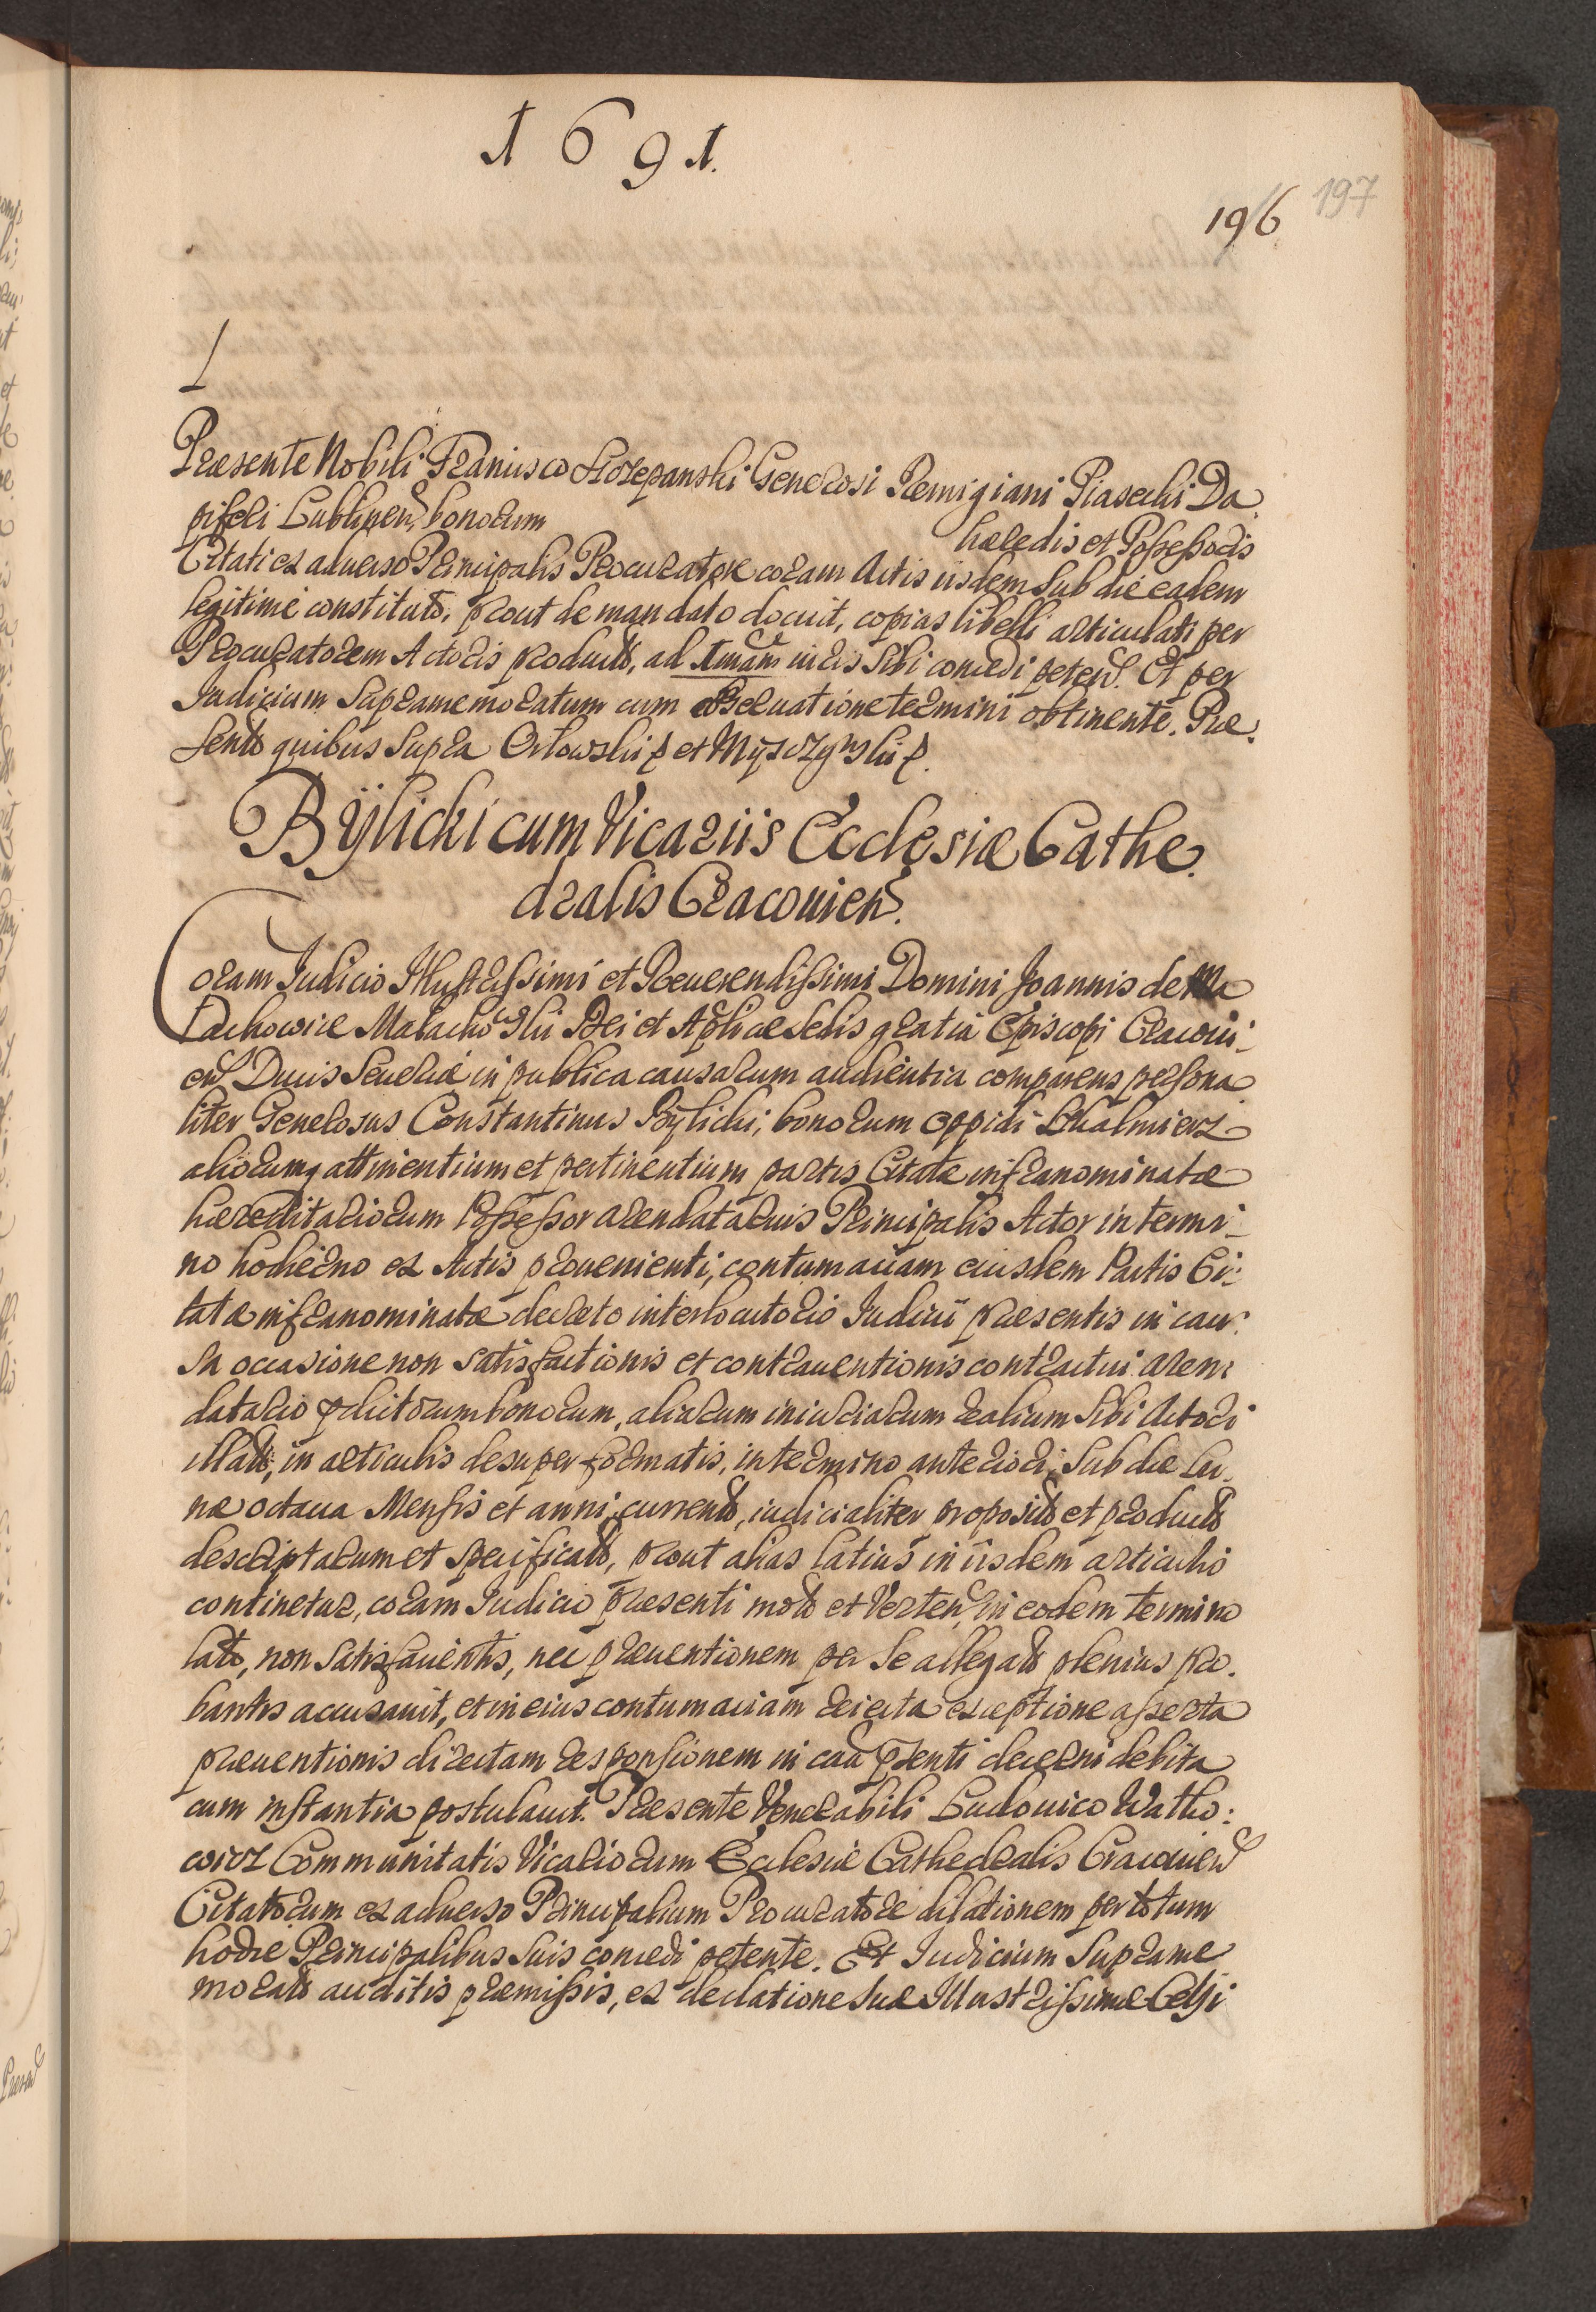 1691.
196 197
Praesente Nobili Francisco Sczepanski Generosi Remigiani Piasecki Da
piferi Lublinen bonorum haeredis et Possessoris
Citati ex adverso Principalis Procuratore coram Actis iisdem sub die eadem
legitime constituto, prout de mandato docuit, copias libelli articulati per
Procuratorem Actoris producti, ad 1mam iuris sibi concedi peten. Et per
Judicium supramemoratum cum observatione termini obtinente. Prae
sentibus quibus supra Orlowski et Mysczynski
Bÿlicki cum Vicariis Ecclesiae Cathe
dralis Cracovien.
Coram Judicio Illustrissimi et Reverendissimi Domini Joannis de Ma
lachowice Malachowski Dei et Aplicae Sedis gratia Episcopi Cracovi
en Ducis Severiae in publica causarum audientia comparens persona
liter Generosus Constantinus Bÿlicki, bonorum oppidi Skalmierz
aliorumq attinentium et pertinentium partis Citatae infranominatae
haereditariorum Possessor arendatarius Principalis Actor in termi
no hodierno ex Actis provenienti, contumaciam eiusdem Partis Ci
tatae infranominatae decreto interlocutorio Judicii praesentis in cau
sa occasione non satisfactionis et contraventionis contractui aren
datario pdictorum bonorum, aliarum iniuriarum realium sibi Actori
illatis, in articulis desuper formatis, in termino anteriori, sub die Lu
nae octava Mensis et anni currentis, iudicialiter propositis et productis
descriptarum et specificatis, prout alias latius in iisdem articulis
continetur, coram Judicio praesenti motis et verten in eodem termino
lato, non satisfacientis, nec praeventionem per se allegatis plenius pro
bantis accusavit, et in eius contumaciam reiecta exceptione asserta
praeventionis directam responsionem in caa psenti decerni debita
cum instantia postulavit. Praesente Venerabili Ludovico Watko
wicz Communitatis Vicariorum Ecclesiae Cathedralis Cracovien
Citatorum ex adverso Principalium Procuratore dilationem per totum
hodie Principalibus suis concedi petente. Et Judicium Suprame
moratis auditis praemissis, ex declatione suae Illustrissimae Celsi